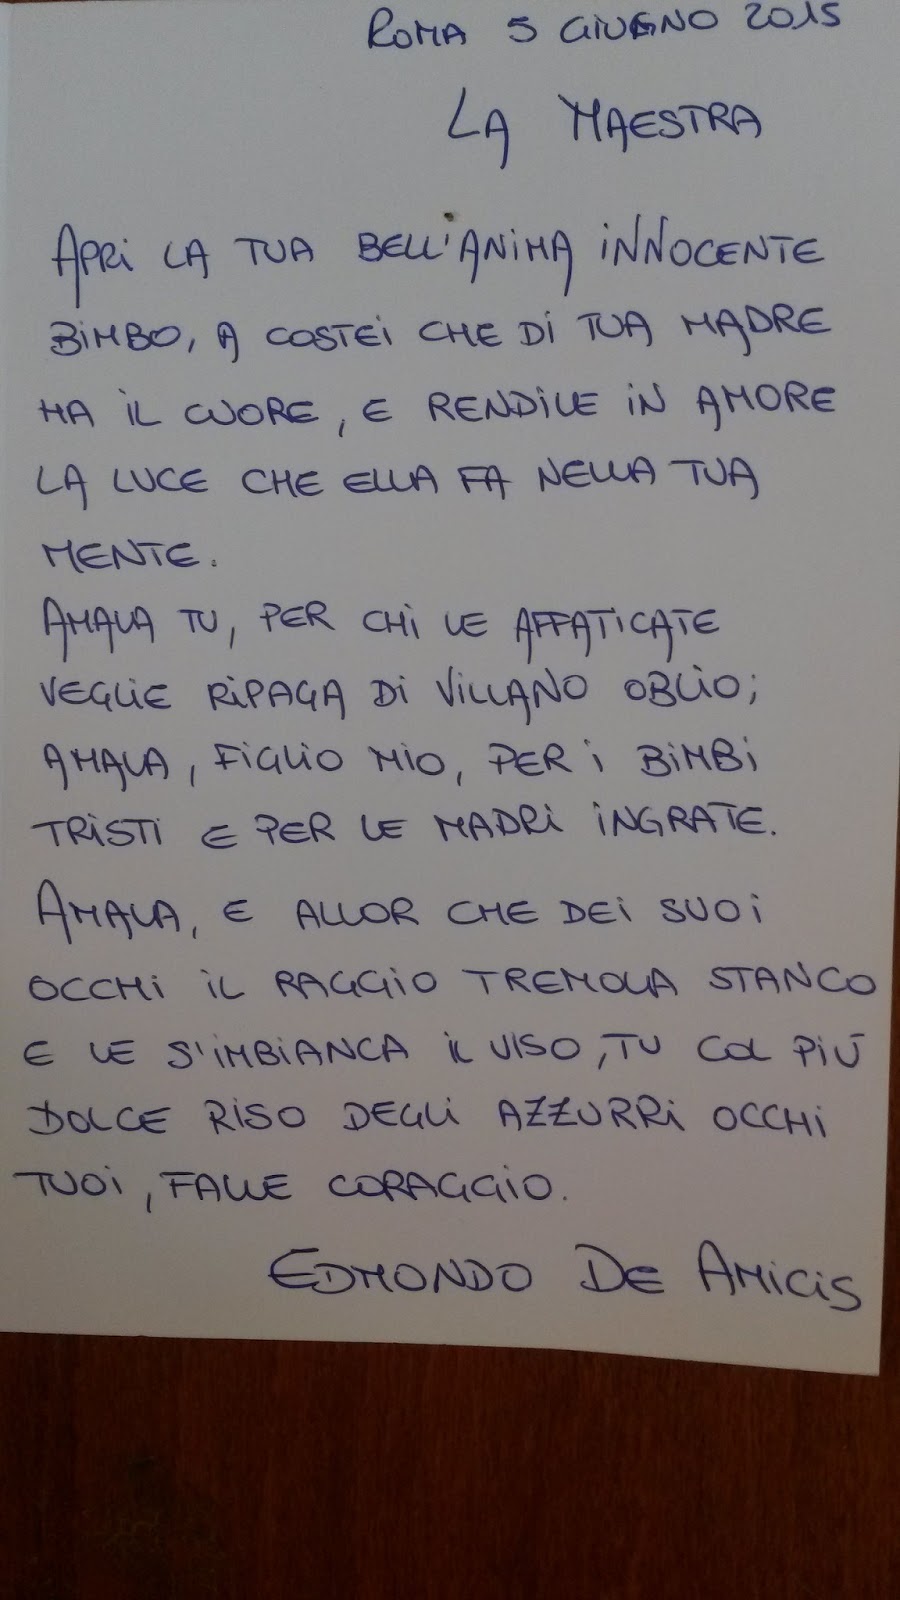 ROMA 5 GIUGNO 2015
LA MAESTRA
APRI LA TUA BELL'ANIMA INNOCENTE
BIMBO, A COSTEI CHE DI TUA MADRE
HA IL CUORE, E RENDILE IN AMORE
LA LUCE CHE ELLA FA NELLA TUA
MENTE.
AMALA TU, PER CHI LE AFFATICATE
VEGLIE RIPAGA DI VILLANO OBLIO;
AMALA, FIGLIO MIO, PER I BIMBI
TRISTI E PER LE MADRI INGRATE.
AMALA, E ALLOR CHE DEI SUOI
OCCHI IL RAGGIO TREMOLA STANCO
E LE S'IMBIANCA IL VISO, TU COL PIÙ
DOLCE RISO DEGLI AZZURRI OCCHI
TUOI, FALLE CORAGGIO.
EDMONDO DE AMICIS